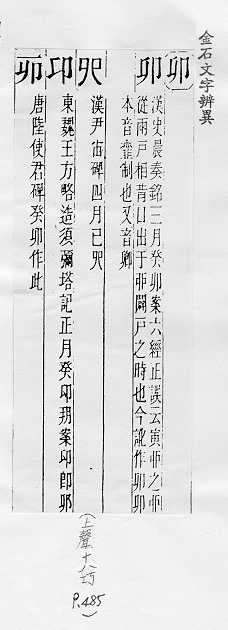 金石文字辨異
卯
卯
漢史晨奏銘三月癸卯案六經正誤云寅丣之丣
從兩戶相背日出于丣闢戶之時也今訛作卯卯
本音壅制也又音卿
𠨍
漢尹宙碑四月己𠨍
印
東魏王方略造須彌塔記正月癸印朔案印卽卯
唐陸使君碑癸卯作此
(上聲十巧
P.485)